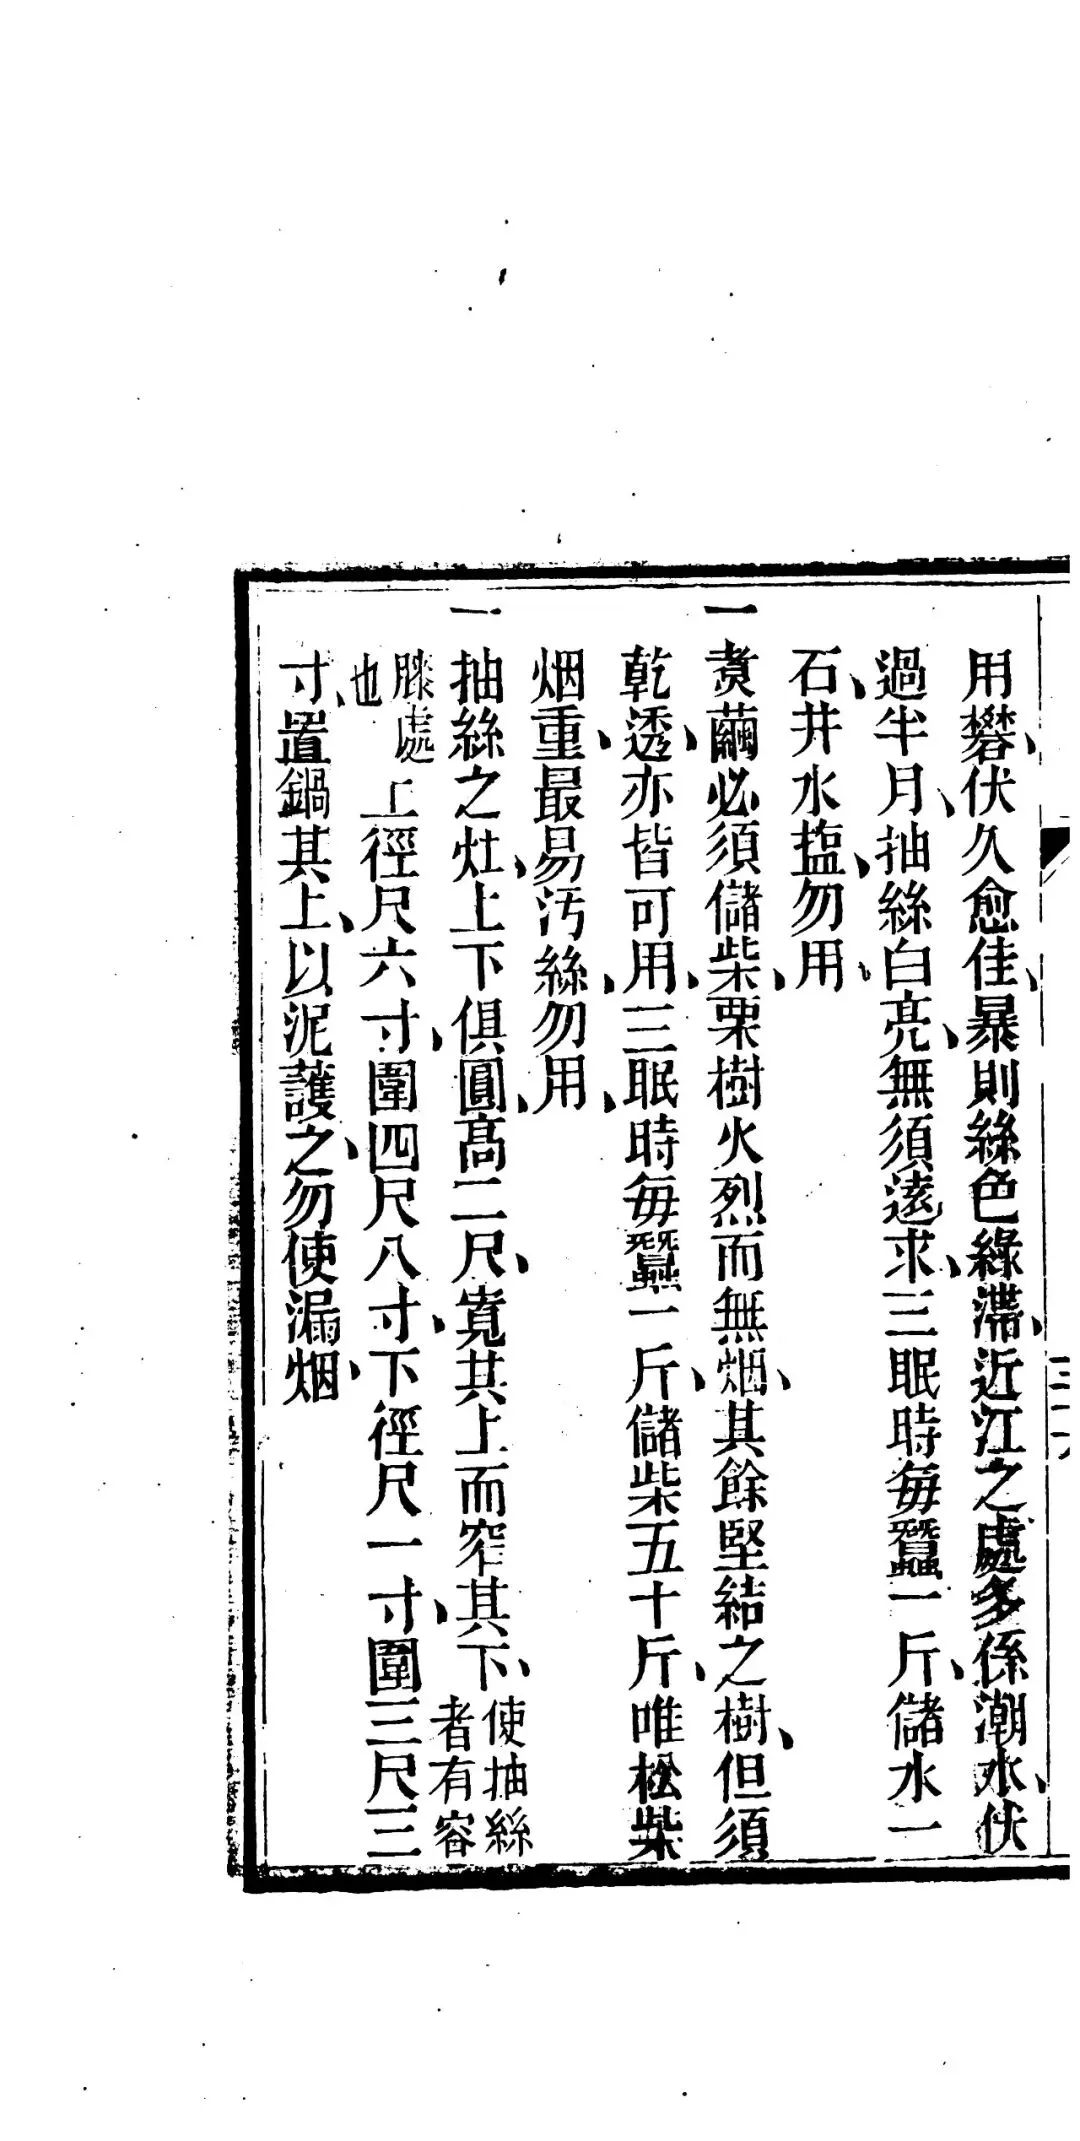 用礬、伏久愈佳、暴則絲色綠滯、近江之處多係潮水、伏
過半月、抽絲白亮、無須逺求、三眠時每蠶一斤、儲水一
石、井水塩、勿用、
一煑繭必須儲柴、栗樹火烈而無烟、其餘堅結之樹、但須
乾透、亦皆可用、三眠時每蠶一斤、儲柴五十斤、唯松柴
烟重、最易汚絲、勿用、
一抽絲之灶、上下俱圓、高二尺、寬其上而窄其下、使抽絲者有容
膝處也、上徑尺六寸、圍四尺八寸、下徑尺一寸、圍三尺三
寸、置鍋其上、以泥護之、勿使漏烟、